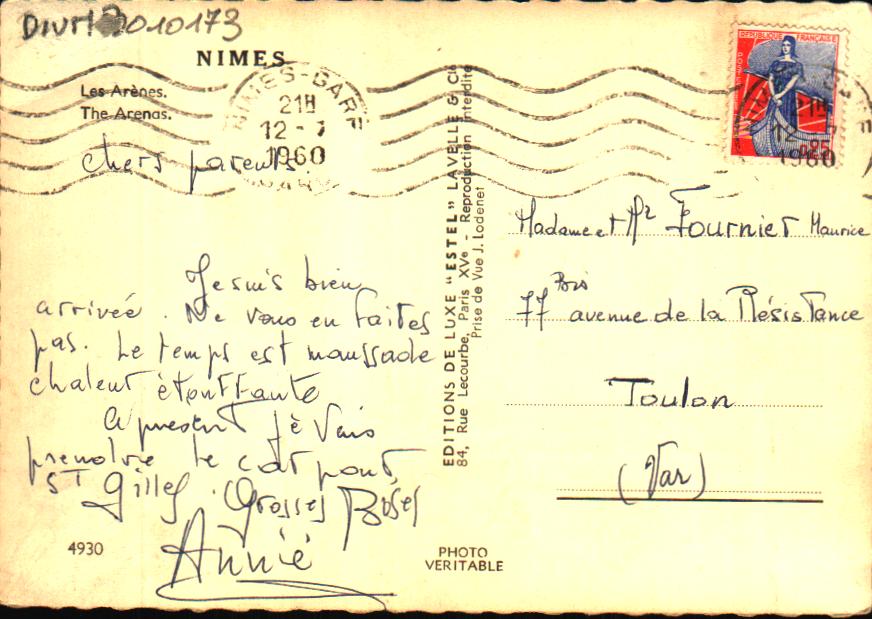 NIMES
Les Arènes.
The Arenas.
NIMES-GARE
21H
12-7
1960
REPUBLIQUE FRANCAISE
21H
12-7
0,25
1960
chers parents.
Je suis bien
arrivée. Ne vous en faites
pas. Le temps est maussade
chaleur étouffante
A present je vais
prendre le car pour
St Gilles. Grosses Bises
Annie
4930
EDITIONS DE LUXE "ESTEL" LAVELLE & Cie
84, Rue Lecourbe, Paris XVe - Reproduction interdite
Prise de Vue J. Lodenet
PHOTO
VERITABLE
Madame et Mr Fournier Maurice
77 Bis avenue de la Résistance
Toulon
(Var)